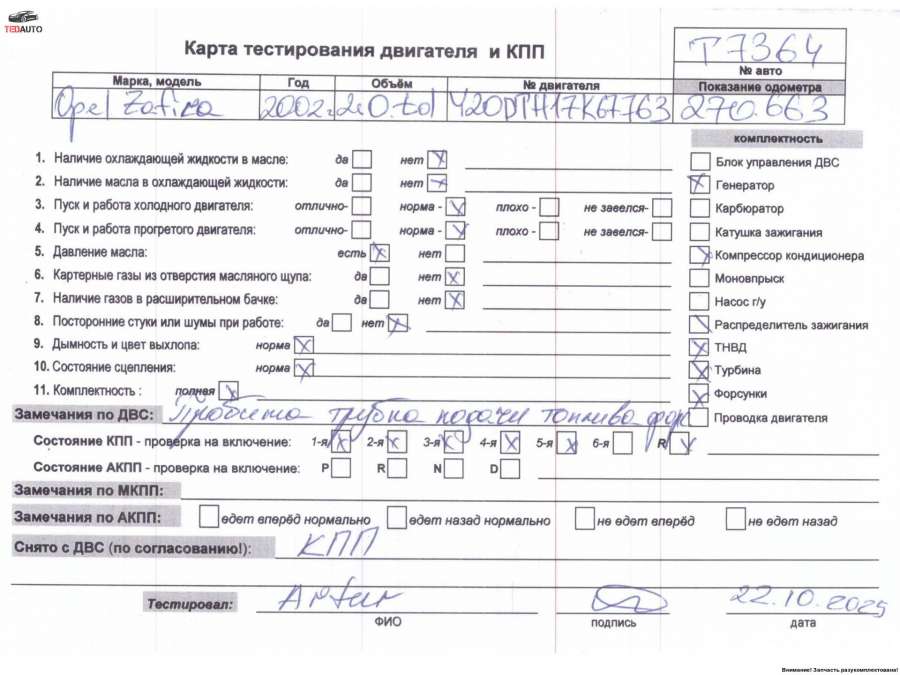 TEDAUTO
Карта тестирования двигателя и КПП
T7364
№ авто
Марка, модель Год Объём № двигателя Показание одометра
Opel Zafira 2002г. 2.0.td Y20DTH17K67763 270.663
комплектность
1. Наличие охлаждающей жидкости в масле: да нет
Блок управления ДВС
2. Наличие масла в охлаждающей жидкости: да нет
Генератор
3. Пуск и работа холодного двигателя: отлично- норма - плохо - не завелся-
Карбюратор
4. Пуск и работа прогретого двигателя: отлично- норма - плохо - не завелся-
Катушка зажигания
5. Давление масла: есть нет
Компрессор кондиционера
6. Картерные газы из отверстия масляного щупа: да нет
Моновпрыск
7. Наличие газов в расширительном бачке: да нет
Насос г/у
8. Посторонние стуки или шумы при работе: да нет
Распределитель зажигания
9. Дымность и цвет выхлопа: норма
ТНВД
10. Состояние сцепления: норма
Турбина
11. Комплектность : полная
Форсунки
Замечания по ДВС: Пробита трубка подачи топлива фор
Проводка двигателя
Состояние КПП - проверка на включение: 1-я 2-я 3-я 4-я 5-я 6-я R
Состояние АКПП - проверка на включение: P R N D
Замечания по МКПП:
Замечания по АКПП: едет вперёд нормально едет назад нормально не едет вперёд не едет назад
Снято с ДВС (по согласованию!): КПП
Тестировал: Artur 22.10.2025
ФИО подпись дата
Внимание! Запчасть разукомплектована!